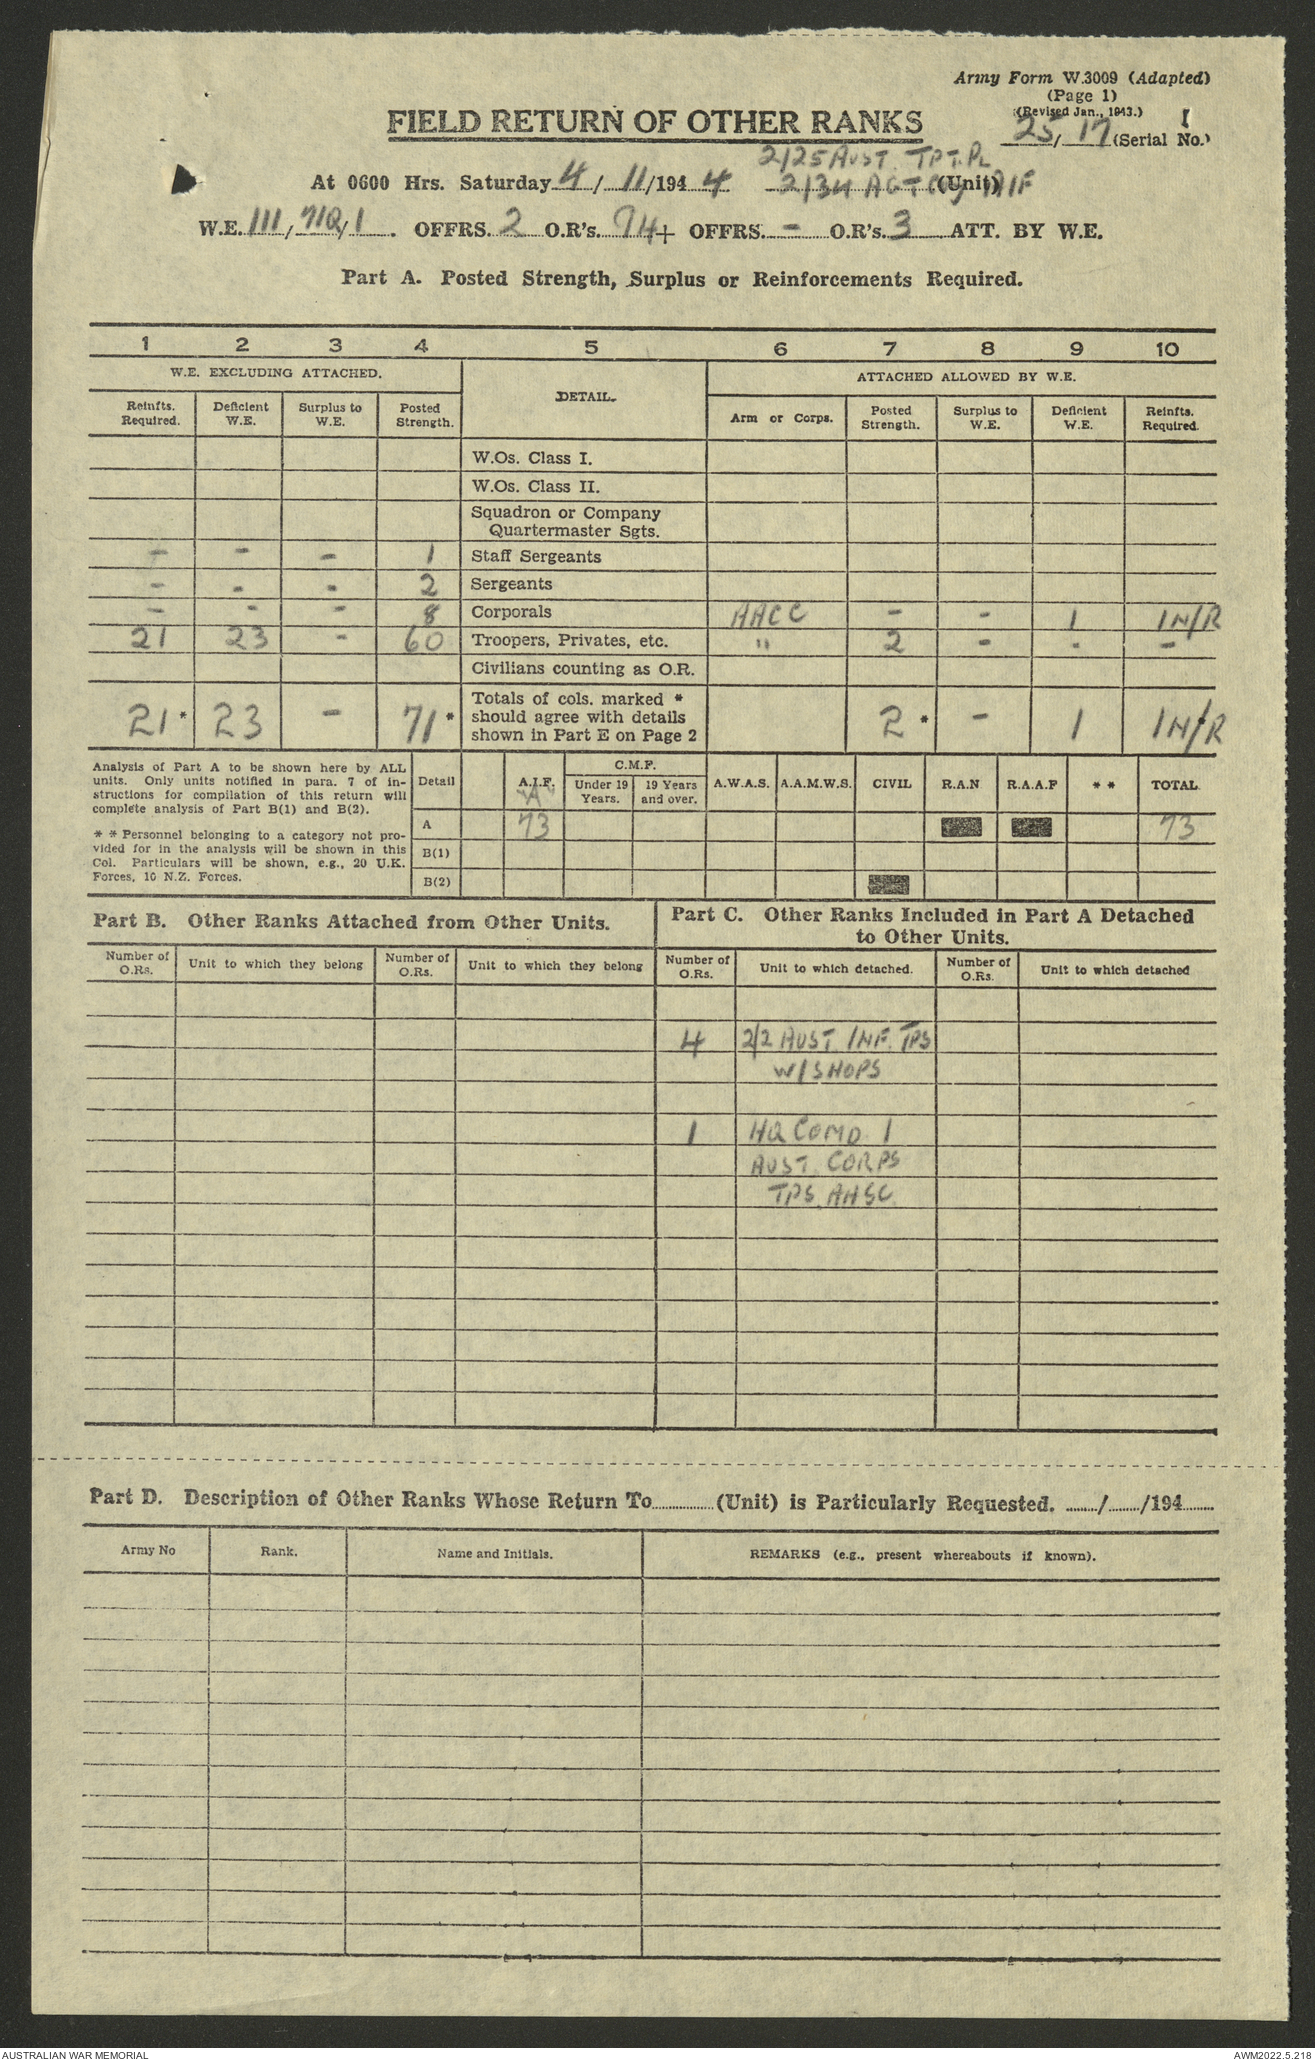 Army Form W.3009 (Adapted)
(Page 1)
(Revised Jan., 1943.)
FIELD RETURN OF OTHER RANKS
25/17 (Serial No.)
2/25 AUST. TPT. PL
At 0600 Hrs. Saturday 4/11/1944 2/34 AGT Coy AIF (Unit)
W.E. 111/710/1. OFFRS. 2 O.R's. 94 + OFFRS. - O.R's. 3 ATT. BY W.E.
Part A. Posted Strength, Surplus or Reinforcements Required.
1 2 3 4 5 6 7 8 9 10
W.E. EXCLUDING ATTACHED. DETAIL. ATTACHED ALLOWED BY W.E.
Reinfts. Required. Deficient W.E. Surplus to W.E. Posted Strength. Arm or Corps. Posted Strength. Surplus to W.E. Deficient W.E. Reinfts. Required.
W.Os. Class I.
W.Os. Class II.
Squadron or Company
Quartermaster Sgts.
- - - 1 Staff Sergeants
- - - 2 Sergeants
- - - 8 Corporals AACC - - 1 1N/R
21 23 - 60 Troopers, Privates, etc. " 2 - - -
Civilians counting as O.R.
21 * 23 - 71 * Totals of cols. marked * should agree with details shown in Part E on Page 2 2 * - 1 1N/R
Analysis of Part A to be shown here by ALL
units. Only units notified in para. 7 of in-
structions for compilation of this return will
complete analysis of Part B(1) and B(2).
* * Personnel belonging to a category not pro-
vided for in the analysis will be shown in this
Col. Particulars will be shown, e.g., 20 U.K.
Forces, 10 N.Z. Forces.
Detail A.I.F. "A" C.M.F. Under 19 Years. 19 Years and over. A.W.A.S. A.A.M.W.S. CIVIL R.A.N R.A.A.F * * TOTAL
A 73 73
B(1)
B(2)
Part B. Other Ranks Attached from Other Units.
Number of O.Rs. Unit to which they belong Number of O.Rs. Unit to which they belong
Part C. Other Ranks Included in Part A Detached
to Other Units.
Number of O.Rs. Unit to which detached. Number of O.Rs. Unit to which detached
4 2/2 AUST. INF. TPS
W/SHOPS
1 HQ COMD 1
AUST. CORPS
TPS. AASC.
Part D. Description of Other Ranks Whose Return To ............ (Unit) is Particularly Requested. ....../....../194......
Army No Rank. Name and Initials. REMARKS (e.g., present whereabouts if known).
AUSTRALIAN WAR MEMORIAL
AWM2022.5.218